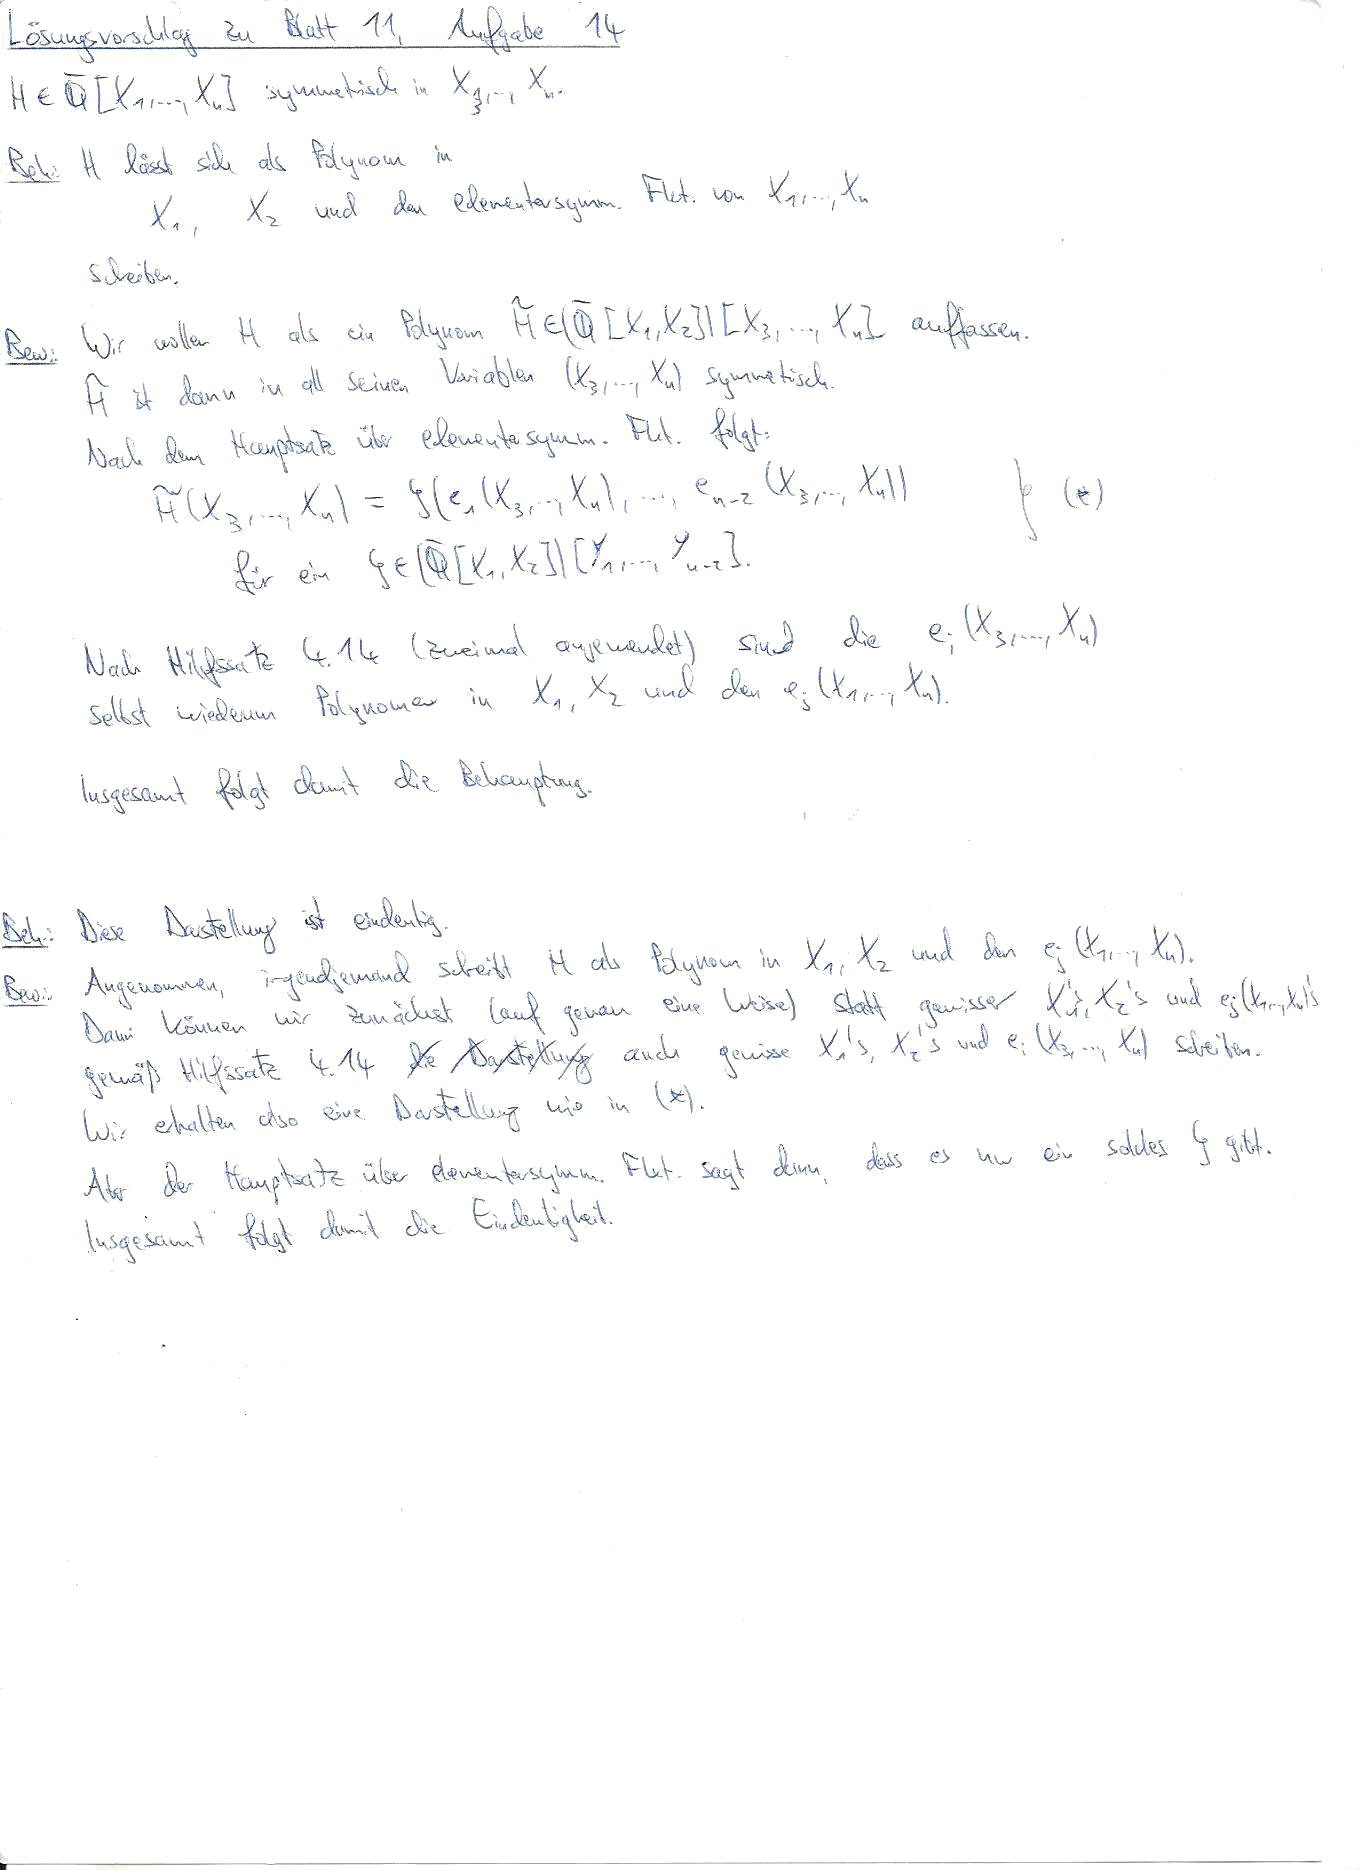 Lösungsvorschlag zu Blatt 11, Aufgabe 14
H ∈ Q̄[X₁,..., Xₙ] symmetrisch in X₃,..., Xₙ.
Beh.: H lässt sich als Polynom in
X₁, X₂ und den elementarsymm. Fkt. von X₁,..., Xₙ
schreiben.
Bew.: Wir wollen H als ein Polynom H̃ ∈ (Q̄[X₁,X₂])[X₃,..., Xₙ] auffassen.
H̃ ist dann in all seinen Variablen (X₃,..., Xₙ) symmetrisch.
Nach dem Hauptsatz über elementarsymm. Fkt. folgt:
H̃(X₃,..., Xₙ) = G(e₁(X₃,..., Xₙ),..., eₙ₋₂(X₃,..., Xₙ)) } (*)
für ein G ∈ (Q̄[X₁,X₂])[Y₁,..., Yₙ₋₂].
Nach Hilfssatz 4.14 (zweimal angewendet) sind die eᵢ(X₃,..., Xₙ)
selbst wiederum Polynome in X₁, X₂ und den eⱼ(X₁,..., Xₙ).
Insgesamt folgt damit die Behauptung.
Beh.: Diese Darstellung ist eindeutig.
Bew.: Angenommen, irgendjemand schreibt H als Polynom in X₁, X₂ und den eⱼ(X₁,..., Xₙ).
Dann können wir zunächst (auf genau eine Weise) statt gewisser X₁'s, X₂'s und eⱼ(X₁,..,Xₙ)'s
gemäß Hilfssatz 4.14 die Darstellung auch gewisse X₁'s, X₂'s und eᵢ(X₃,..., Xₙ) schreiben.
Wir erhalten also eine Darstellung wie in (*).
Aber der Hauptsatz über elementarsymm. Fkt. sagt dann, dass es nur ein solches G gibt.
Insgesamt folgt damit die Eindeutigkeit.